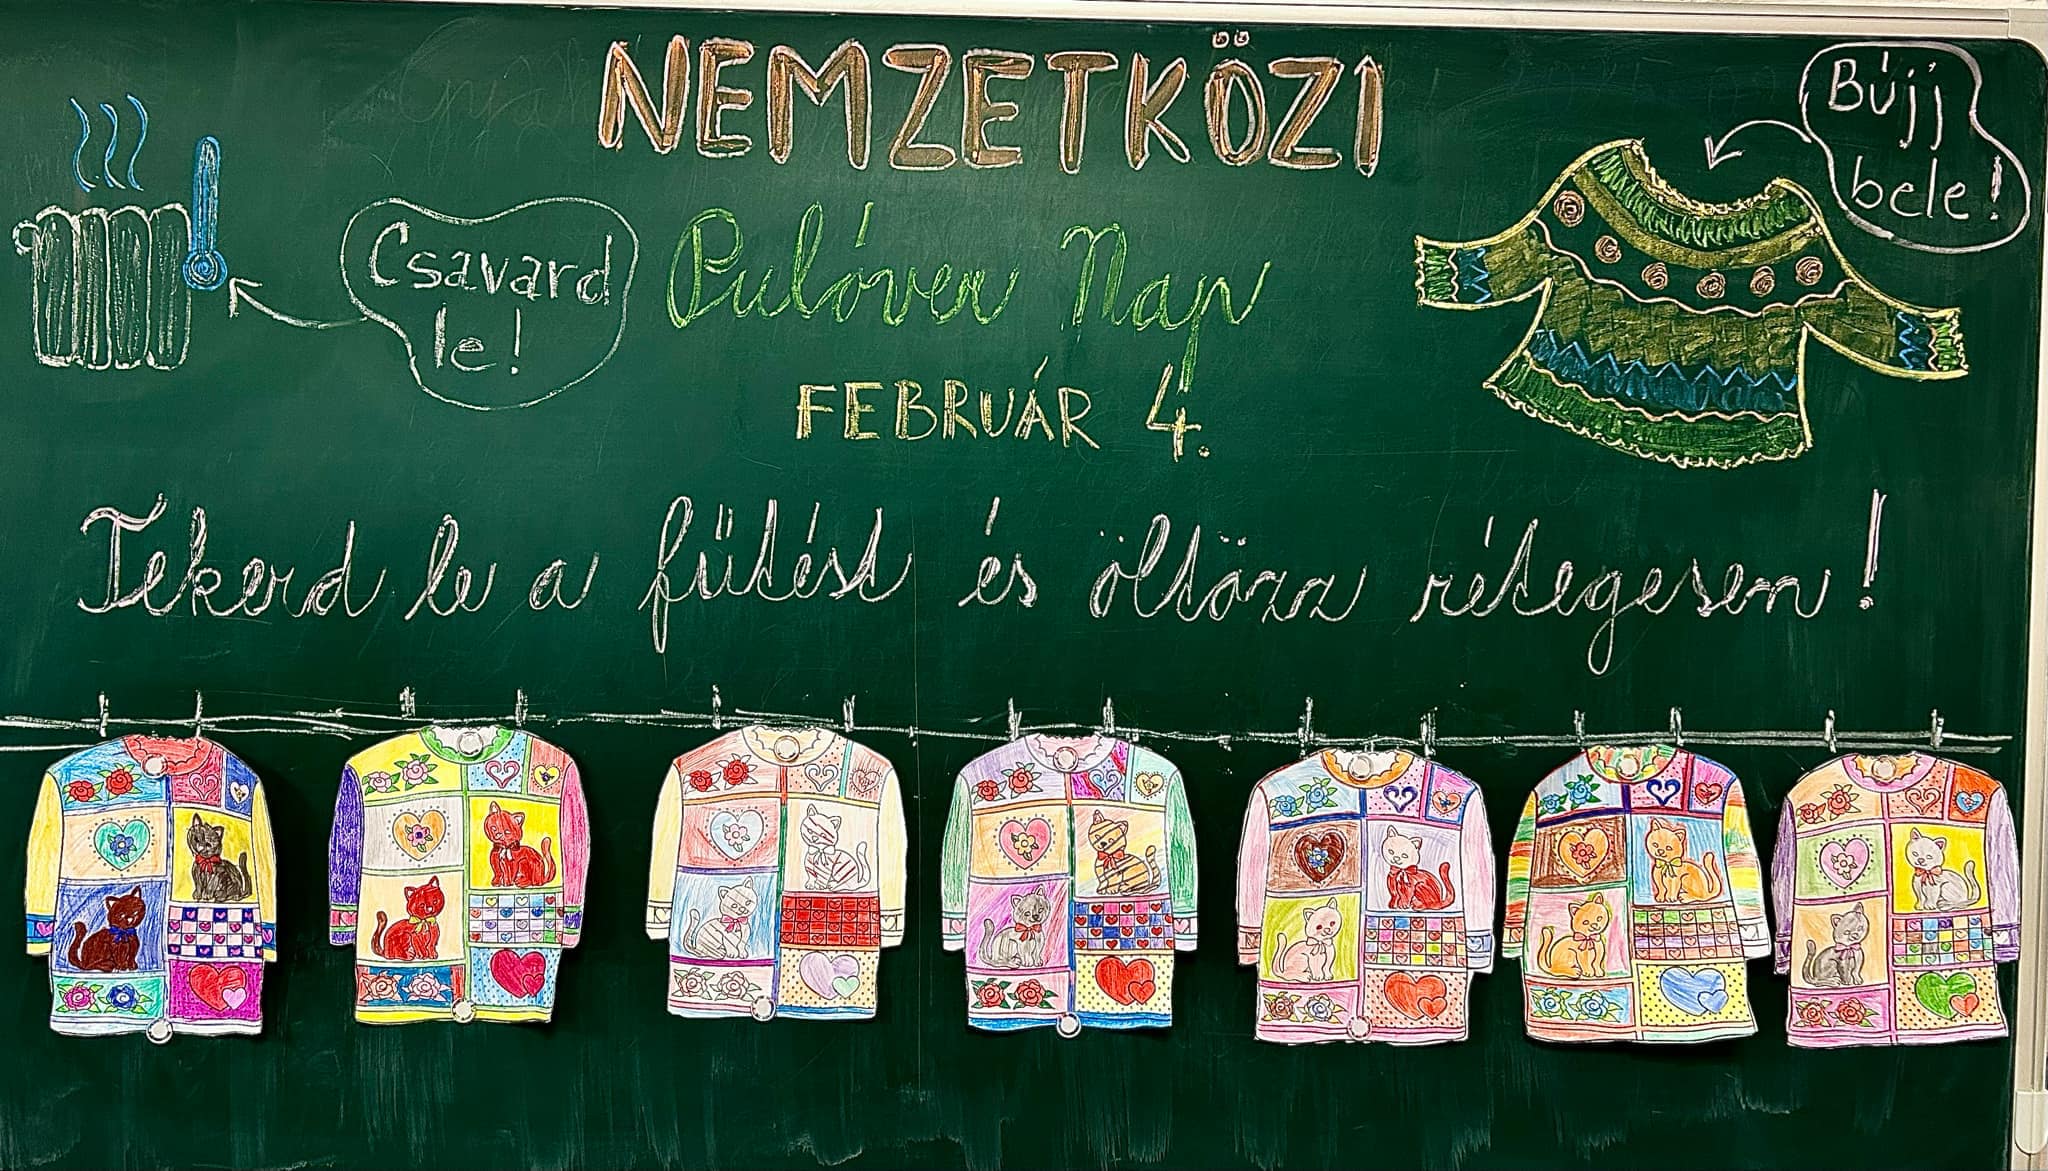 NEMZETKÖZI
Bújj
bele!
Csavard
le!
Pulóver Nap
FEBRUÁR 4.
Tekerd le a fűtést és öltözz rétegesen!